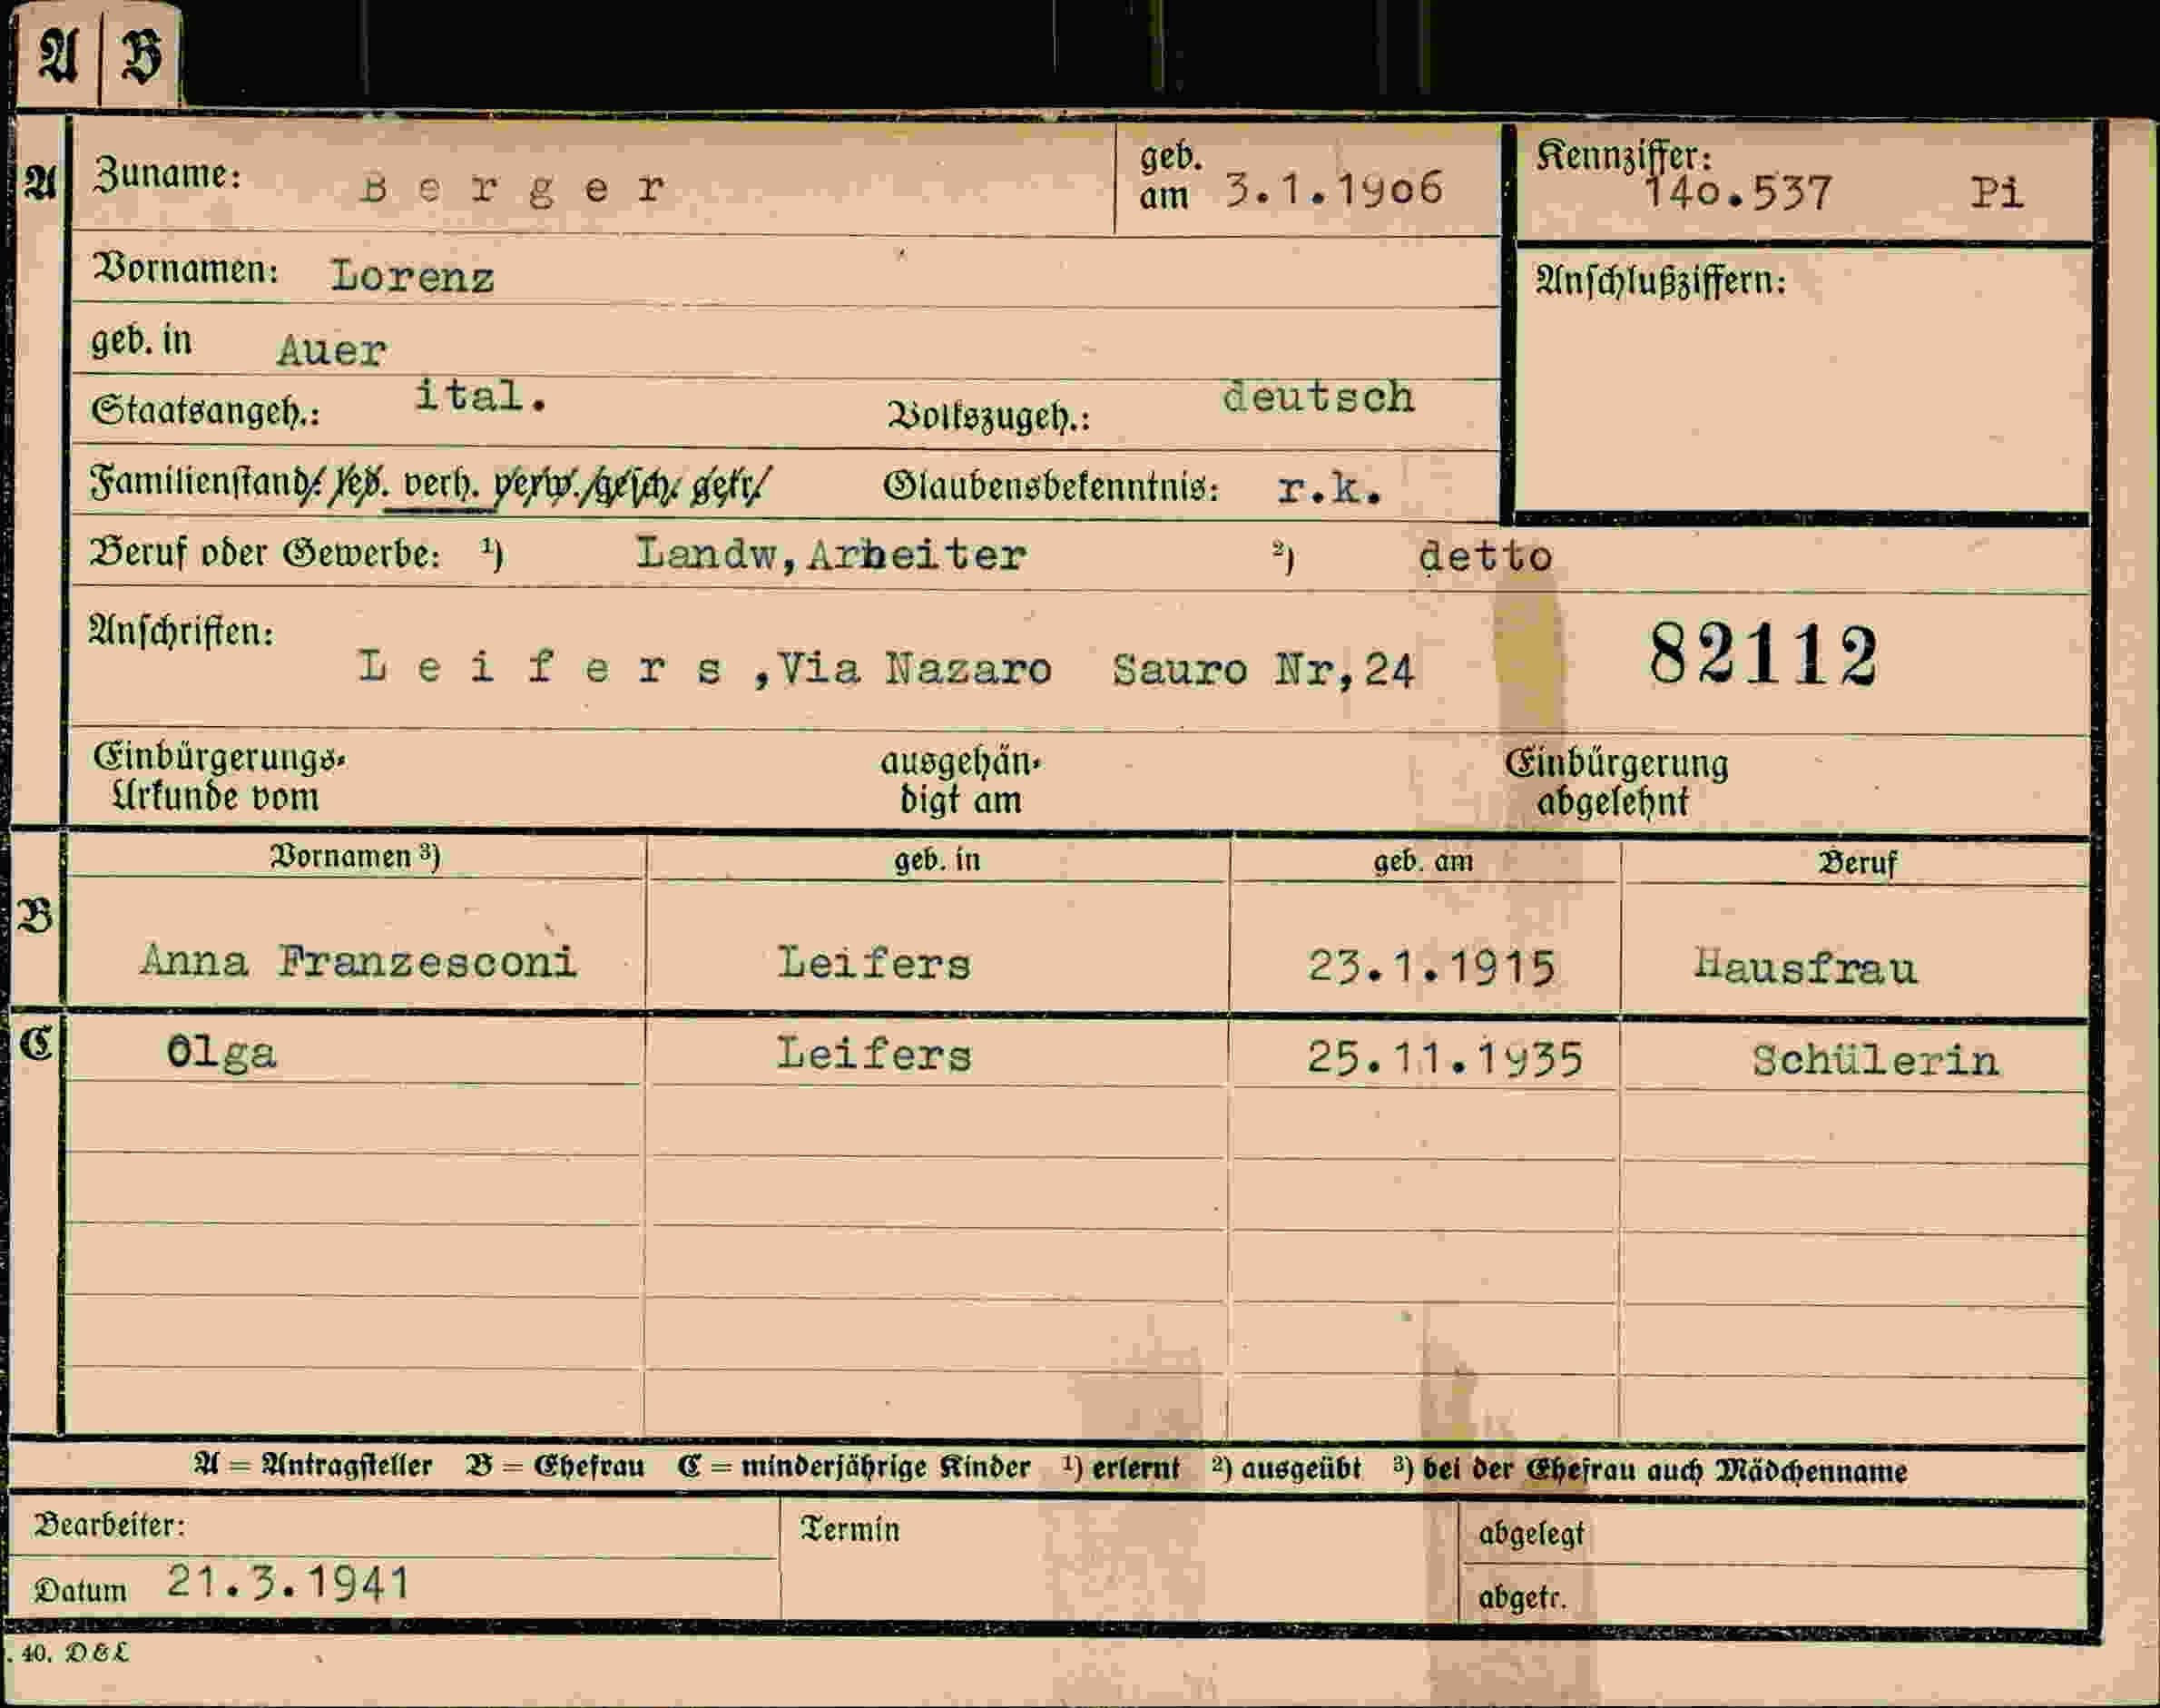 A B
A Zuname: Berger geb. am 3.1.1906 Kennziffer: 140.537 Pi
Vornamen: Lorenz Anschlußziffern:
geb. in Auer
Staatsangeh.: ital. Volkszugeh.: deutsch
Familienstand: led. verh. verw. gesch. getr. Glaubensbekenntnis: r.k.
Beruf oder Gewerbe: ¹) Landw,Arbeiter ²) detto
Anschriften: Leifers,Via Nazaro Sauro Nr,24 82112
Einbürgerungs- ausgehän- Einbürgerung
Urkunde vom digt am abgelehnt
Vornamen ³) geb. in geb. am Beruf
B Anna Franzesconi Leifers 23.1.1915 Hausfrau
C Olga Leifers 25.11.1935 Schülerin
A = Antragsteller B = Ehefrau C = minderjährige Kinder ¹) erlernt ²) ausgeübt ³) bei der Ehefrau auch Mädchenname
Bearbeiter: Termin abgelegt
Datum 21.3.1941 abgetr.
. 40. D&L